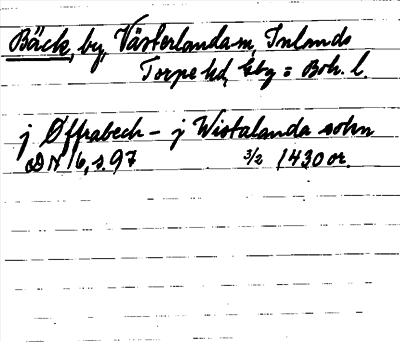 Bäck, by, Västerlanda sn, Inlands
Torpe hd, Gbg o Boh. l.
j Øffrabech – j Wistalanda sokn
DN 16, s. 97 3/2 1430 or.